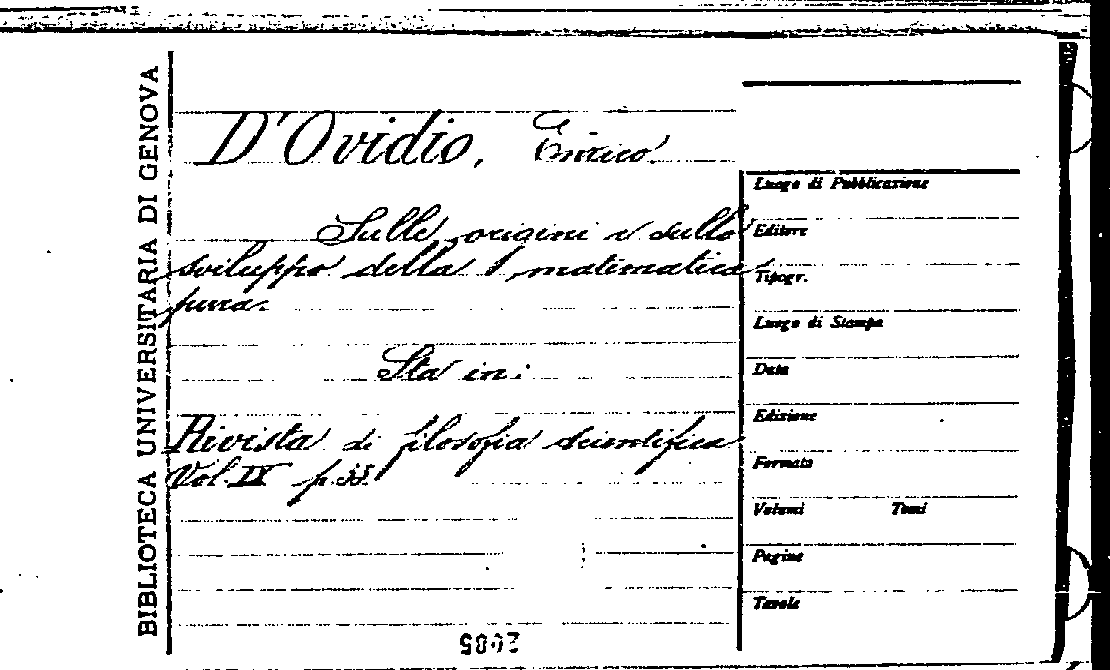 BIBLIOTECA UNIVERSITARIA DI GENOVA
D'Ovidio, Enrico.
Sulle origini e sullo
sviluppo della matematica
pura.
Sta in:
Rivista di filosofia scientifica
Vol. IX p. 33.
Luogo di Pubblicazione
Editore
Tipogr.
Luogo di Stampa
Data
Edizione
Formato
Volumi Tomi
Pagine
Tavole